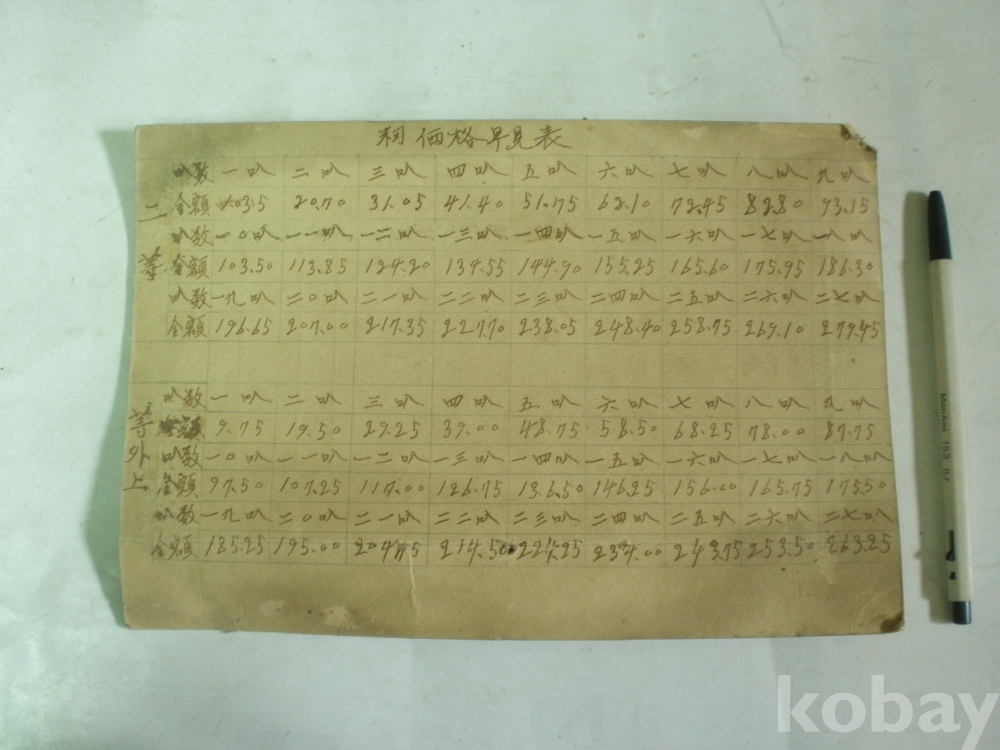 籾価格早見表
二等
叺数 一叺 二叺 三叺 四叺 五叺 六叺 七叺 八叺 九叺
金額 10.35 20.70 31.05 41.40 51.75 62.10 72.45 82.80 93.15
叺数 一〇叺 一一叺 一二叺 一三叺 一四叺 一五叺 一六叺 一七叺 一八叺
金額 103.50 113.85 124.20 134.55 144.90 155.25 165.60 175.95 186.30
叺数 一九叺 二〇叺 二一叺 二二叺 二三叺 二四叺 二五叺 二六叺 二七叺
金額 196.65 207.00 217.35 227.70 238.05 248.40 258.75 269.10 279.45
等外上
叺数 一叺 二叺 三叺 四叺 五叺 六叺 七叺 八叺 九叺
金額 9.75 19.50 29.25 39.00 48.75 58.50 68.25 78.00 87.75
叺数 一〇叺 一一叺 一二叺 一三叺 一四叺 一五叺 一六叺 一七叺 一八叺
金額 97.50 107.25 117.00 126.75 136.50 146.25 156.00 165.75 175.50
叺数 一九叺 二〇叺 二一叺 二二叺 二三叺 二四叺 二五叺 二六叺 二七叺
金額 185.25 195.00 214.50 224.25 234.00 243.75 253.50 263.25
MonAmi 153 0.7
kobay